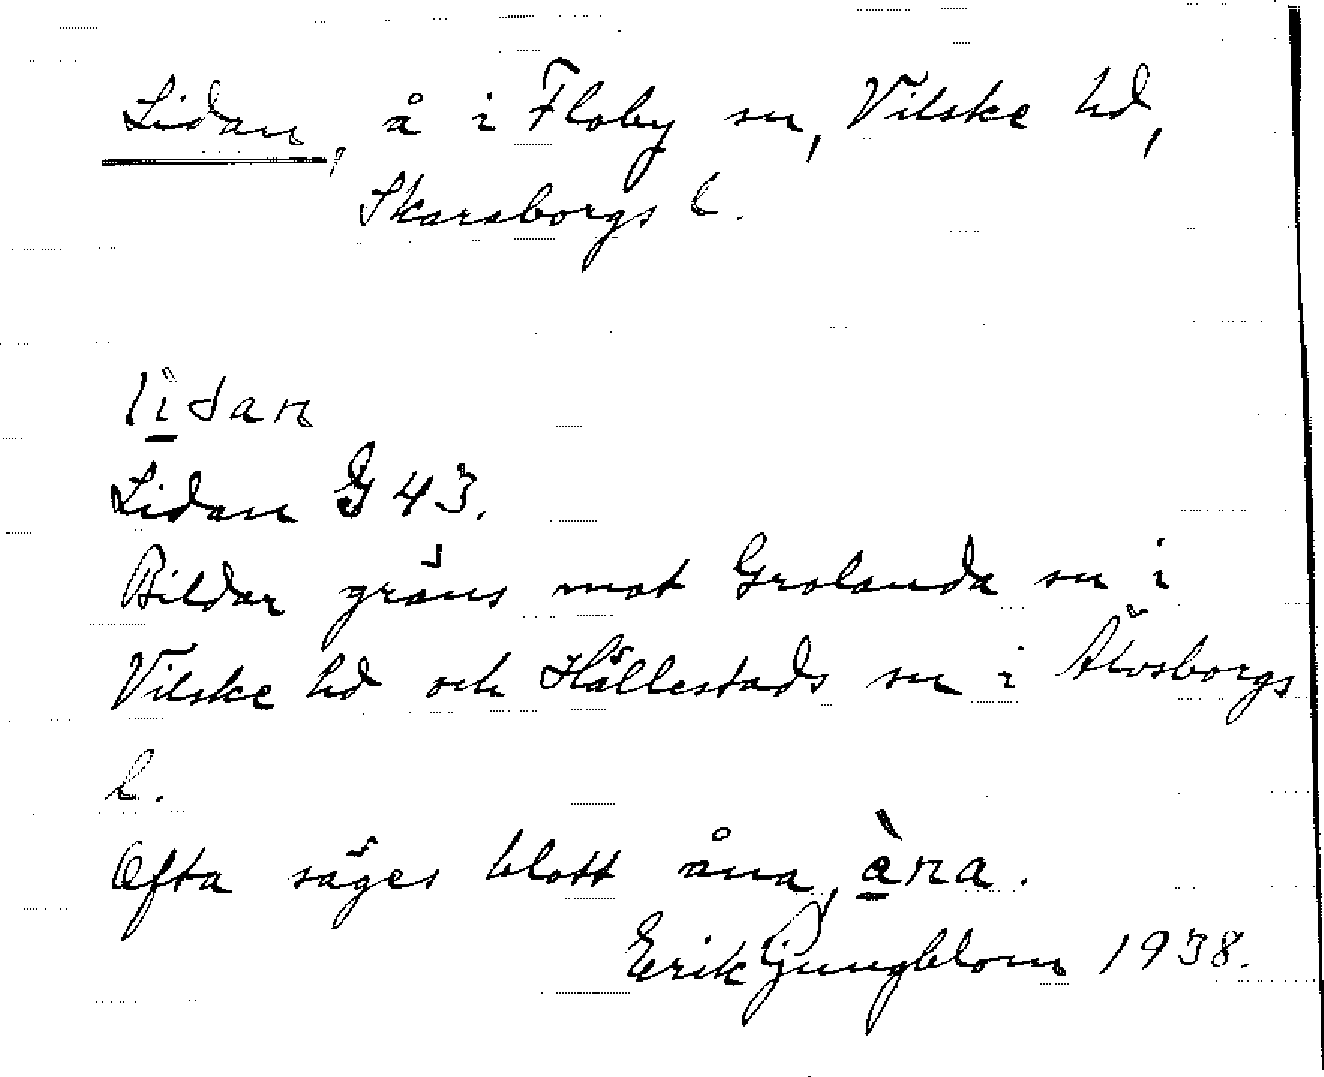 Lidan, å i Floby sn, Vilske hd,
Skaraborgs l.
lìdan
Lidan G 43.
Bildar gräns mot Grolanda sn i
Vilske hd och Hällestads sn i Älvsborgs
l.
Ofta säges blott åna, àna.
Erik Ljungblom 1938.